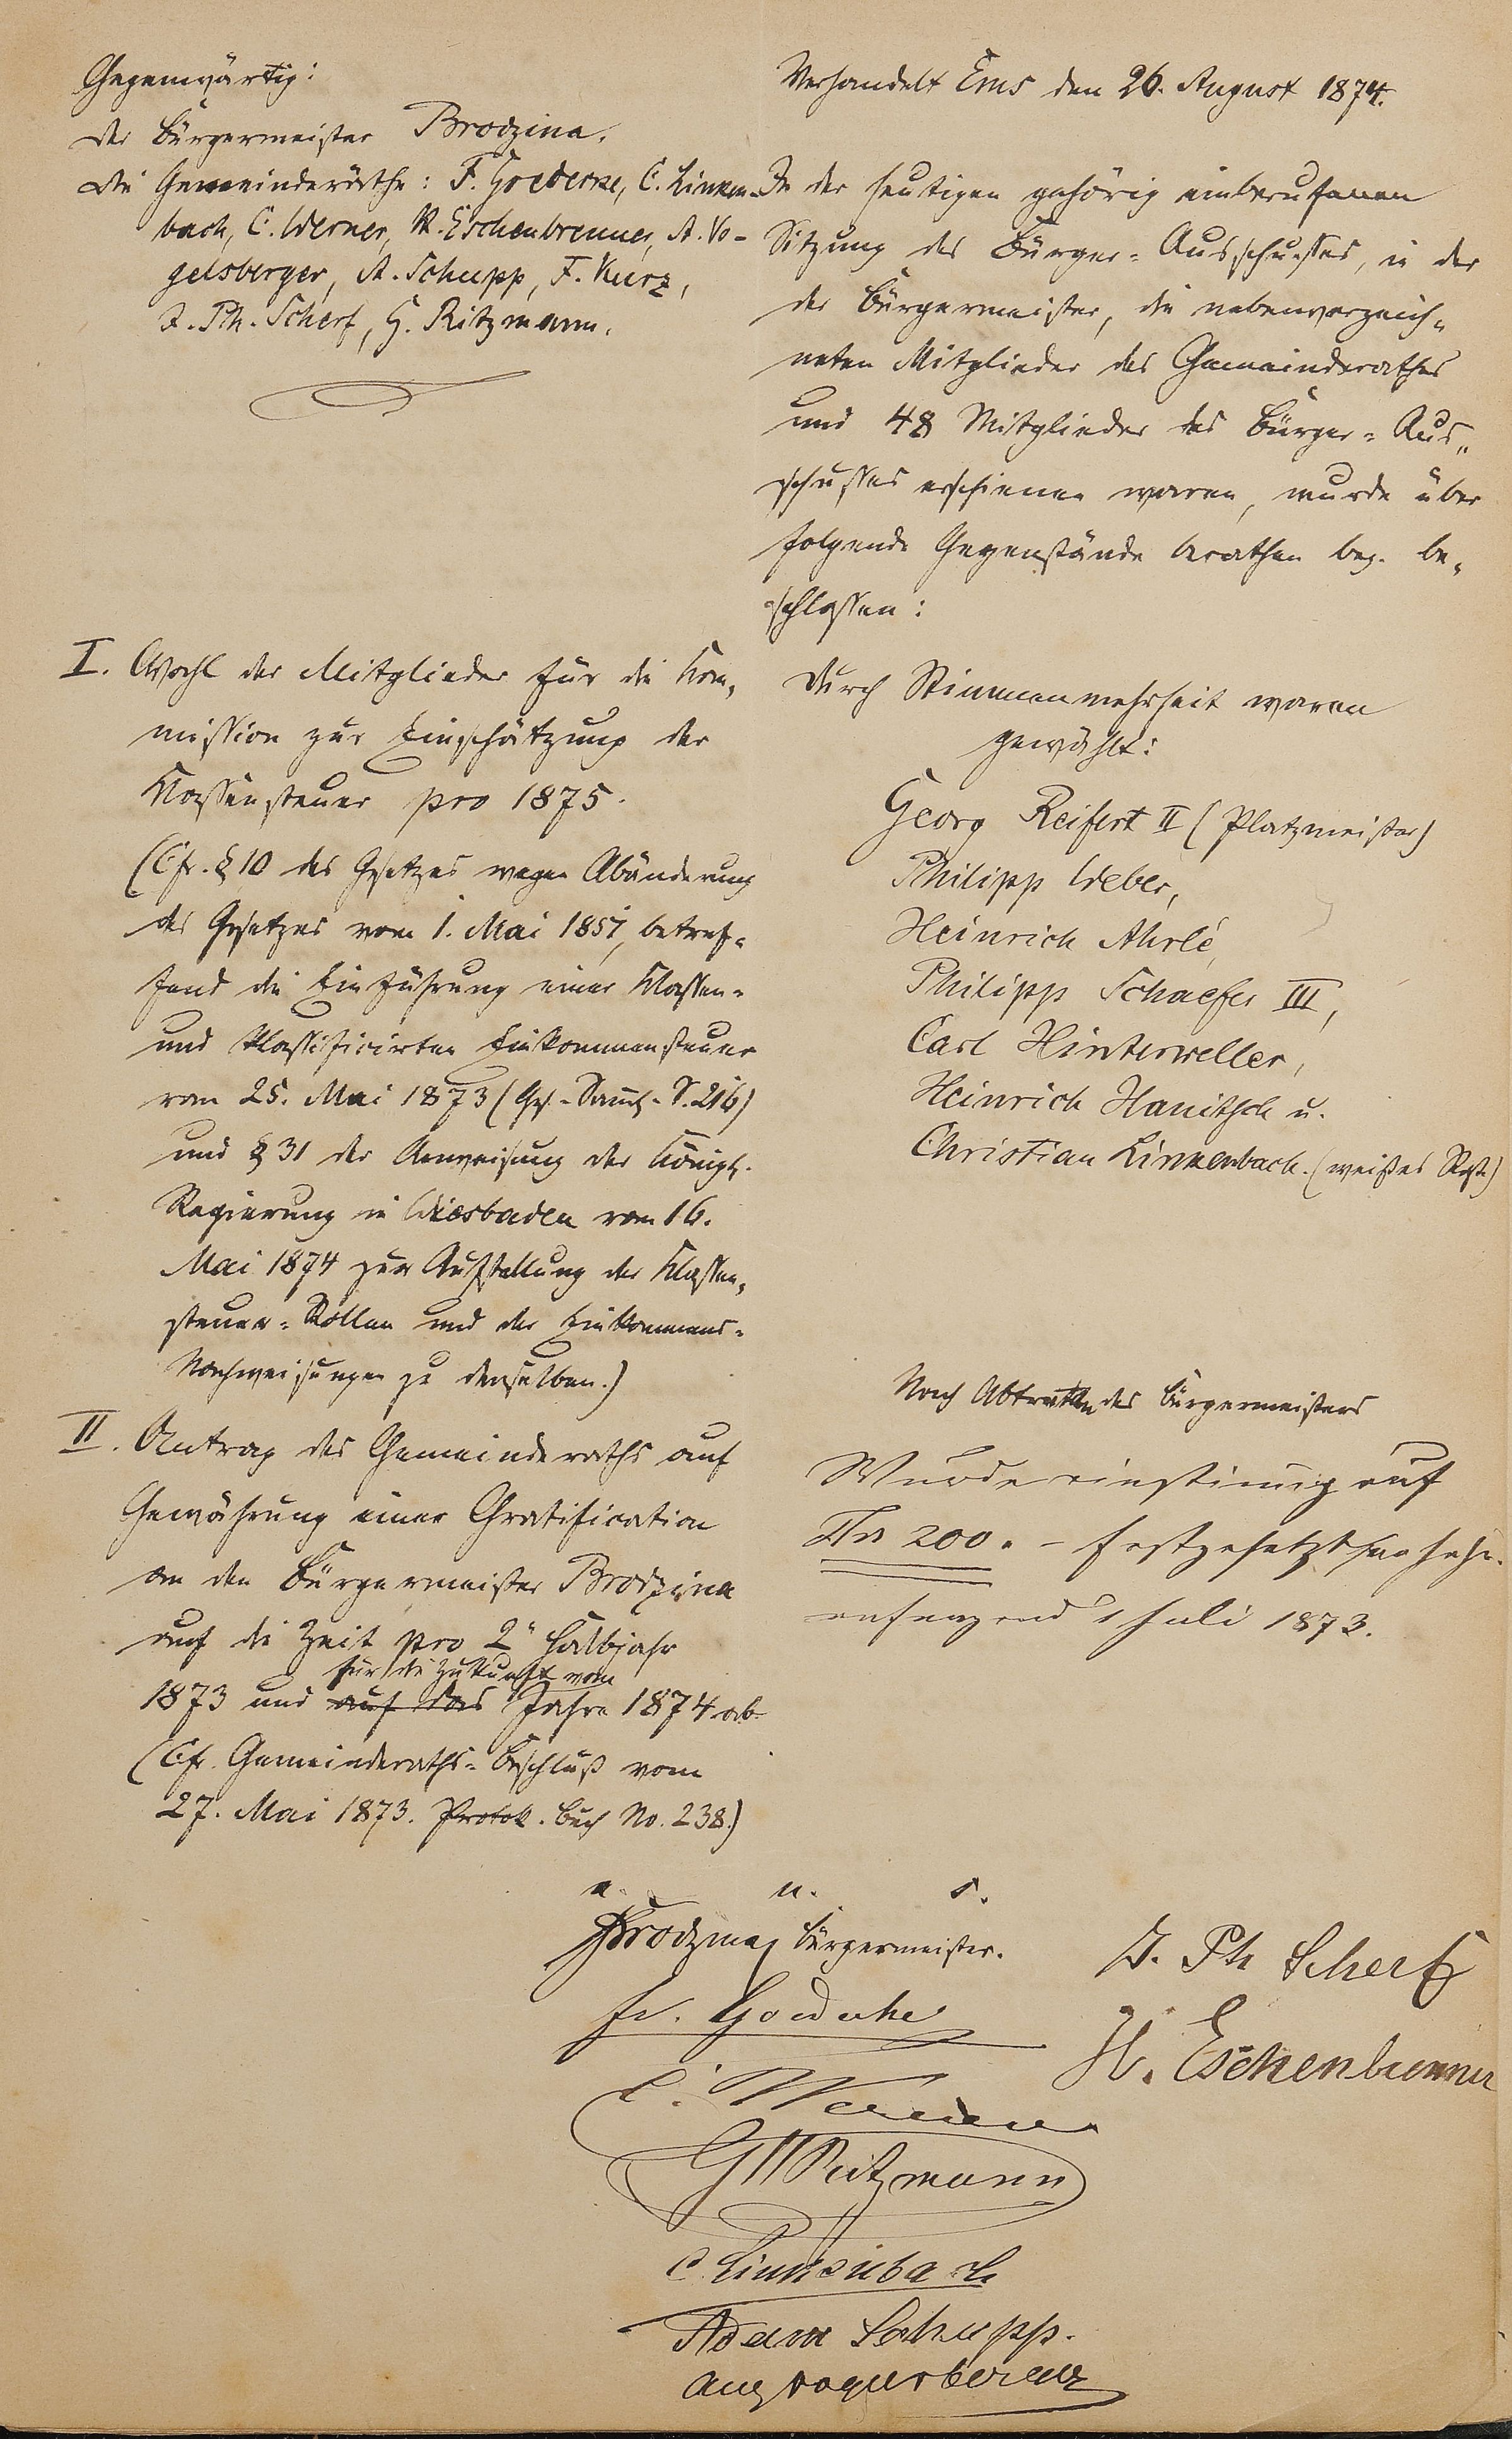 Gegenwärtig:
der Bürgermeister Brodzina.
die Gemeinderäthe: F. Goedecke, C. Linken-
bach, C. Werner, W. Eschenbrenner, A. Vo-
gelsberger, A. Schupp, F. Kurz,
J. Ph. Scherf, G. Ritzmann.
Verhandelt Ems den 26. August 1874.
In der heutigen gehörig einberufenen
Sitzung des Bürger-Ausschusses, in der
der Bürgermeister, die nebenverzeich-
neten Mitglieder des Gemeinderathes
und 48 Mitglieder des Bürger-Aus-
schusses erschienen waren, wurde über
folgende Gegenstände berathen bez. be-
schlossen:
I. Wahl der Mitglieder für die Kom-
mission zur Einschätzung der
Klassensteuer pro 1875.
(Cfr. § 10 des Gesetzes wegen Abänderung
des Gesetzes vom 1. Mai 1851, betref-
fend die Einführung einer Klassen-
und klassificirten Einkommensteuer
vom 25. Mai 1873 (Ges.-Samml. S. 216)
und § 31 der Anweisung der Königl.
Regierung in Wiesbaden vom 16.
Mai 1874 zur Aufstellung der Klassen-
steuer-Rollen und der Einkommens-
Nachweisungen zu denselben.)
Durch Stimmenmehrheit waren
gewählt:
Georg Reifert II (Platzmeister)
Philipp Weber,
Heinrich Ahrlé,
Philipp Schaefer III,
Carl Hinterweller,
Heinrich Hanitsch u.
Christian Linkenbach. (weißes Roß)
II. Antrag des Gemeinderaths auf
Gewährung einer Gratification
an den Bürgermeister Brodzina
auf die Zeit pro 2" Halbjahr
für die Zukunft vom
1873 und auf das Jahre 1874 ab
(Cfr. Gemeinderaths-Beschluß vom
27. Mai 1873. Protok. Buch No. 238.)
Nach Abtreten des Bürgermeisters
Wurde einstimig auf
200.- festgesetzt
anfangend 1 Juli 1873.
a. u. s.
Brodzina, Bürgermeister.
Fr. Goedecke
C. Werner
G Ritzmann
C Linkenbach
Adam Schupp.
Aug Vogelsberger
J. Ph Scherf
W. Eschenbrenner